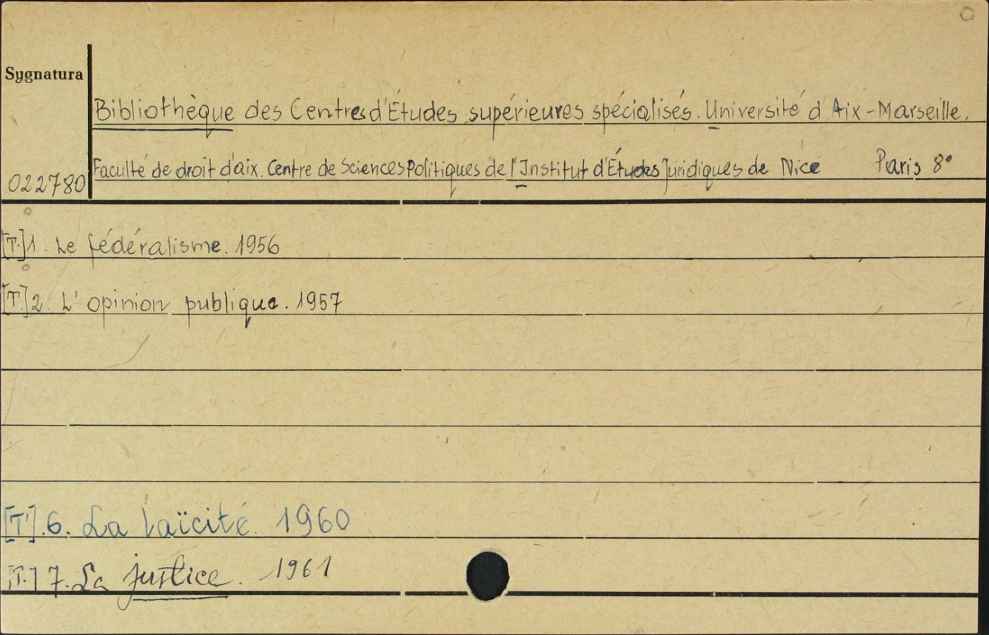 Sygnatura
Bibliothèque des Centres d'Études supérieures spécialisés. Université d'Aix-Marseille.
022780 Faculté de droit d'aix. Centre de Sciences Politiques de l'Institut d'Études Juridiques de Nice Paris 8°
[T.]1. Le fédéralisme. 1956
[T]2. L'opinion publique. 1957
[T].6. La laïcité. 1960
[T.] 7. La justice. 1961